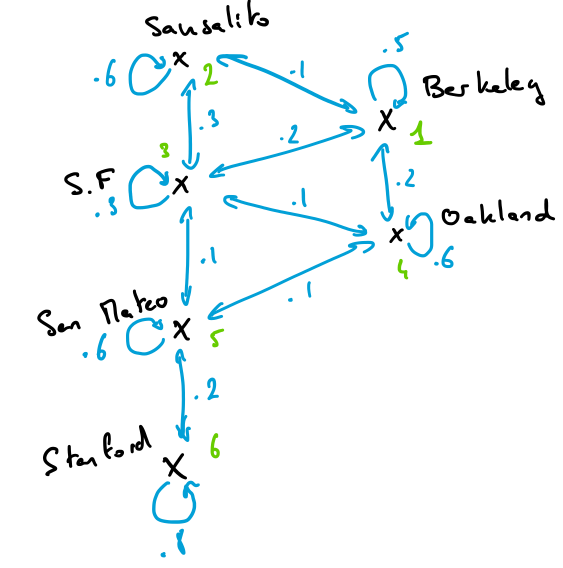 Sausalito
.5
.6
2
.1
Berkeley
.3
1
.2
3
S.F
.3
.1
.2
Oakland
.6
4
.1
.1
San Mateo
.6
5
.2
Stanford
6
.8